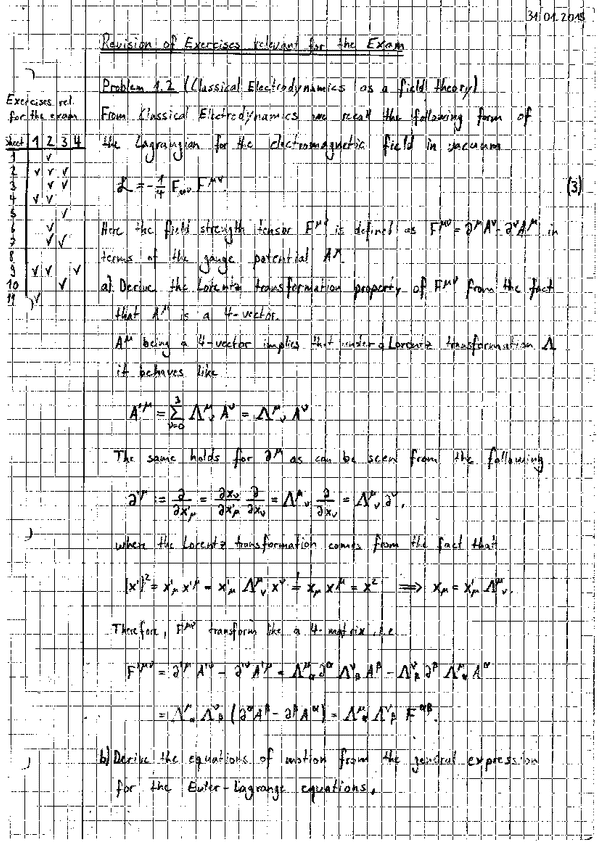 31.01.2018
Revision of Exercises relevant for the Exam
Exercises rel.
for the exam
Sheet 1 2 3 4
1 ✓
2 ✓ ✓ ✓
3 ✓ ✓
4 ✓ ✓
5 ✓
6 ✓
7 ✓ ✓
8
9 ✓ ✓ ✓
10 ✓
11 ✓
Problem 1.2 (Classical Electrodynamics as a field theory)
From Classical Electrodynamics we recall the following form of
the Lagrangian for the electromagnetic field in vacuum
ℒ = -1/4 F_μν F^μν. (3)
Here the field strength tensor F^μν is defined as F^μν = ∂^μ A^ν - ∂^ν A^μ in
terms of the gauge potential A^μ.
a) Derive the Lorentz transformation property of F^μν from the fact
that A^μ is a 4-vector.
A^μ being a 4-vector implies that under a Lorentz transformation Λ
it behaves like
A'^μ = Σ_{ν=0}^{3} Λ^μ_ν A^ν = Λ^μ_ν A^ν
The same holds for ∂^μ as can be seen from the following
∂'^μ := ∂/∂x'_μ = ∂x_ν/∂x'_μ ∂/∂x_ν = Λ^μ_ν ∂/∂x_ν = Λ^μ_ν ∂^ν,
where the Lorentz transformation comes from the fact that
|x'|² = x'_μ x'^μ = x'_μ Λ^μ_ν x^ν =! x_μ x^μ = x² ⟹ x_μ = x'_μ Λ^μ_ν.
Therefore, F^μν transform like a 4-matrix, i.e.
F'^μν = ∂'^μ A'^ν - ∂'^ν A'^μ = Λ^μ_α ∂^α Λ^ν_β A^β - Λ^ν_β ∂^β Λ^μ_α A^α
= Λ^μ_α Λ^ν_β (∂^α A^β - ∂^β A^α) = Λ^μ_α Λ^ν_β F^αβ.
b) Derive the equations of motion from the general expression
for the Euler-Lagrange equations.